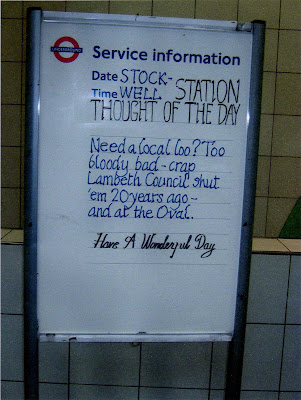 UNDERGROUND
Service information
Date STOCK-
Time WELL STATION
THOUGHT OF THE DAY
Need a local loo? Too
bloody bad - crap
Lambeth Council shut
'em 20 years ago -
and at the Oval.
Have A Wonderful Day